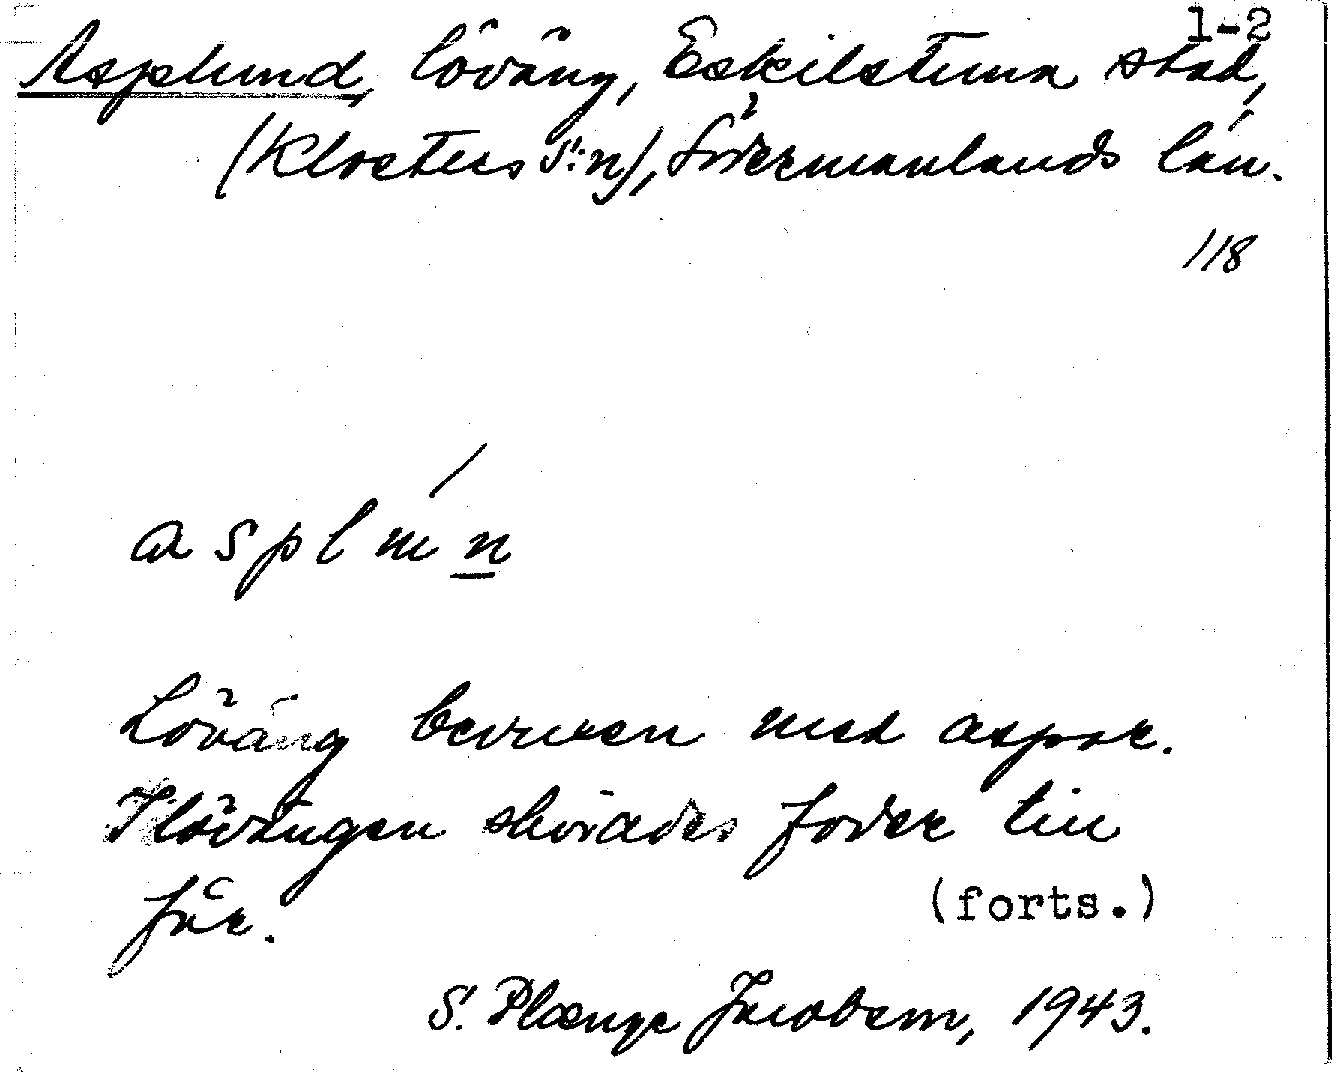 1-2
Asplund, löväng, Eskilstuna stad,
(Klosters s:n), Södermanlands län.
118
asplún
Löväng bevuxen med aspar.
I lövängen skördades foder till
får.
(forts.)
S. Plænge Jacobson, 1943.